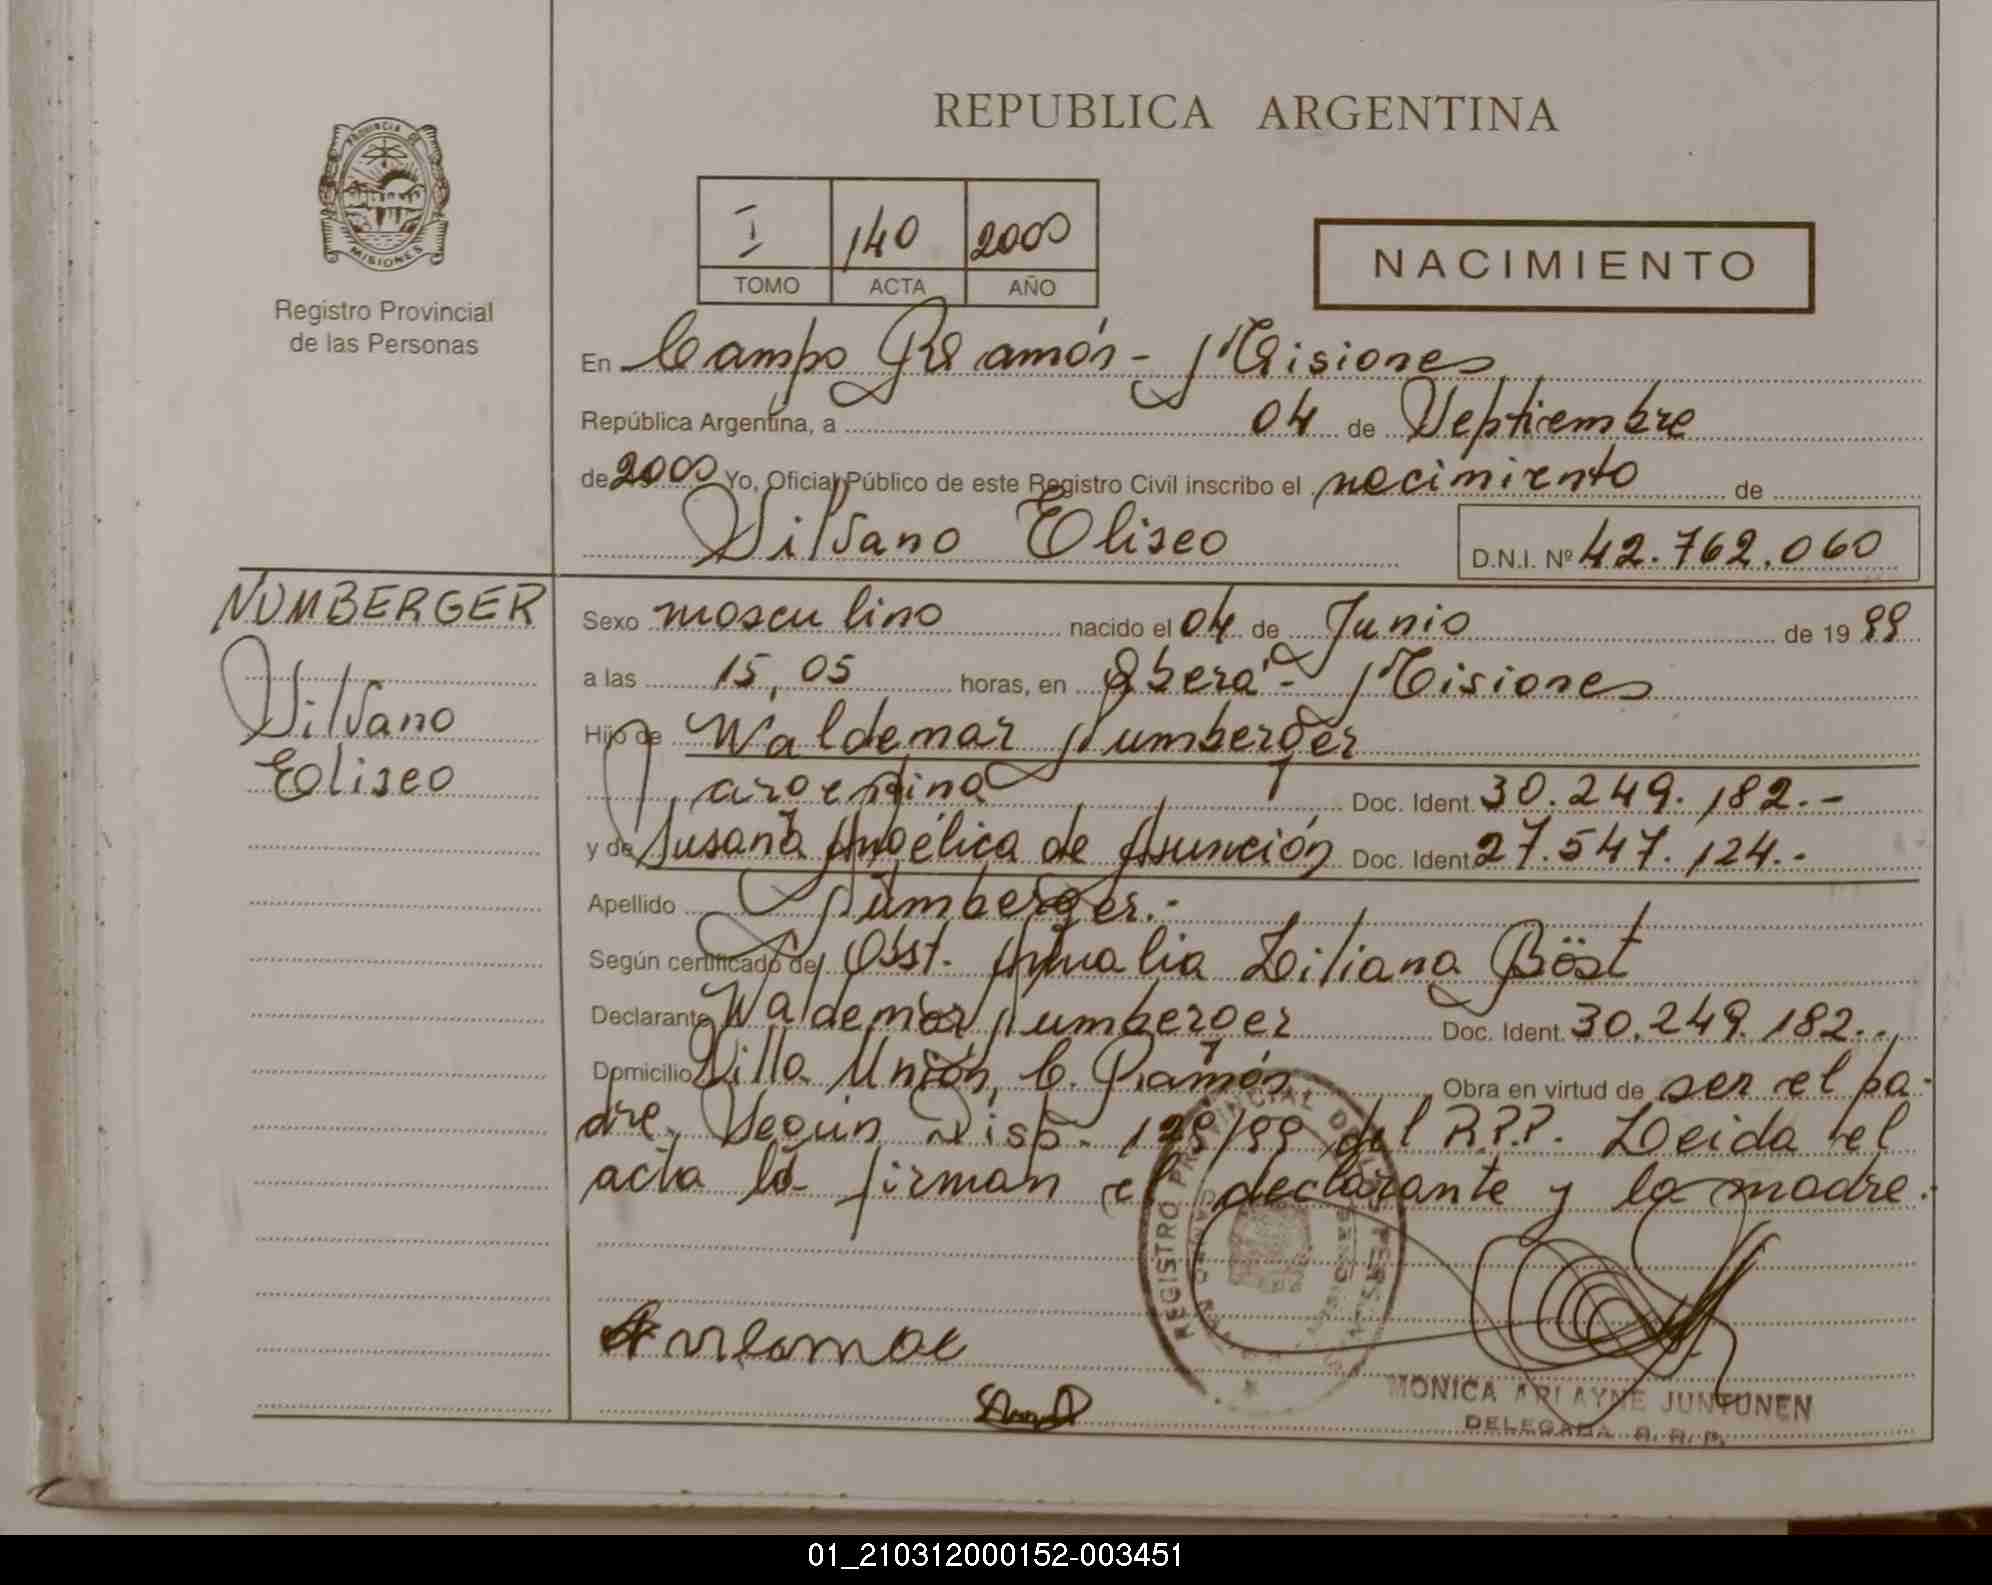 REPUBLICA ARGENTINA
PROVINCIA DE
MISIONES
Registro Provincial
de las Personas
I 140 2000
TOMO ACTA AÑO
NACIMIENTO
En Campo Ramón - Misiones
República Argentina, a 04 de Septiembre
de 2000 Yo, Oficial Público de este Registro Civil inscribo el nacimiento de
Silvano Eliseo D.N.I. Nº 42.762.060
NUMBERGER
Silvano
Eliseo
Sexo masculino nacido el 04 de Junio de 1999
a las 15,05 horas, en Oberá - Misiones
Hijo de Waldemar Numberger
argentina Doc. Ident. 30.249.182.-
y de Susana Angélica de Asunción Doc. Ident. 27.547.124.-
Apellido Numberger.-
Según certificado de Obst. Amalia Liliana Böst
Declarante Waldemar Numberger Doc. Ident. 30.249.182.-
Domicilio Villa Unión, C. Ramón Obra en virtud de ser el pa-
dre. Según Disp. 129/99 del R.P.P. Leida el
acta la firman el declarante y la madre.-
REGISTRO PROVINCIAL DE LAS PERSONAS
MONICA ARLAYNE JUNTUNEN
DELEGADA R. P. P.
01_210312000152-003451